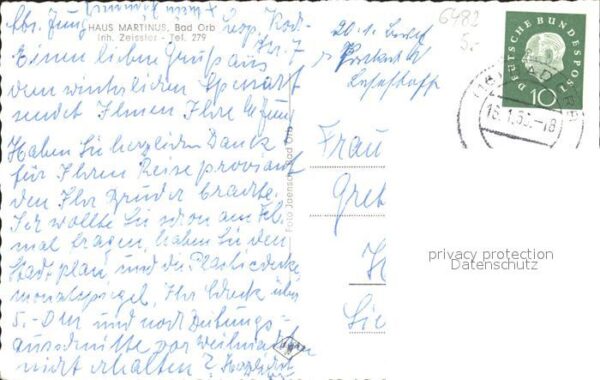 HAUS MARTINUS, Bad Orb
Inh. Zeissler - Tel. 279
Einen lieben Gruß aus
dem winterlichen Spessart
sendet Ihnen Ihre
Haben Sie herzlichen Dank
für Ihren Reiseproviant
den Ihr Bruder brachte.
Ich wollte Sie schon am
mal fragen, haben Sie den
Stadtplan und die Plasticdecke
Ihr Scheck über
5.-DM und noch Zeitungs-
ausschnitte vor Weihnachten
nicht erhalten? Herzlichst
Foto Joensch, Bad Orb
20.1.
6482
5.-
DEUTSCHE BUNDESPOST
10
16.1.60.-18
Frau
Gret
H
Sie
privacy protection
Datenschutz